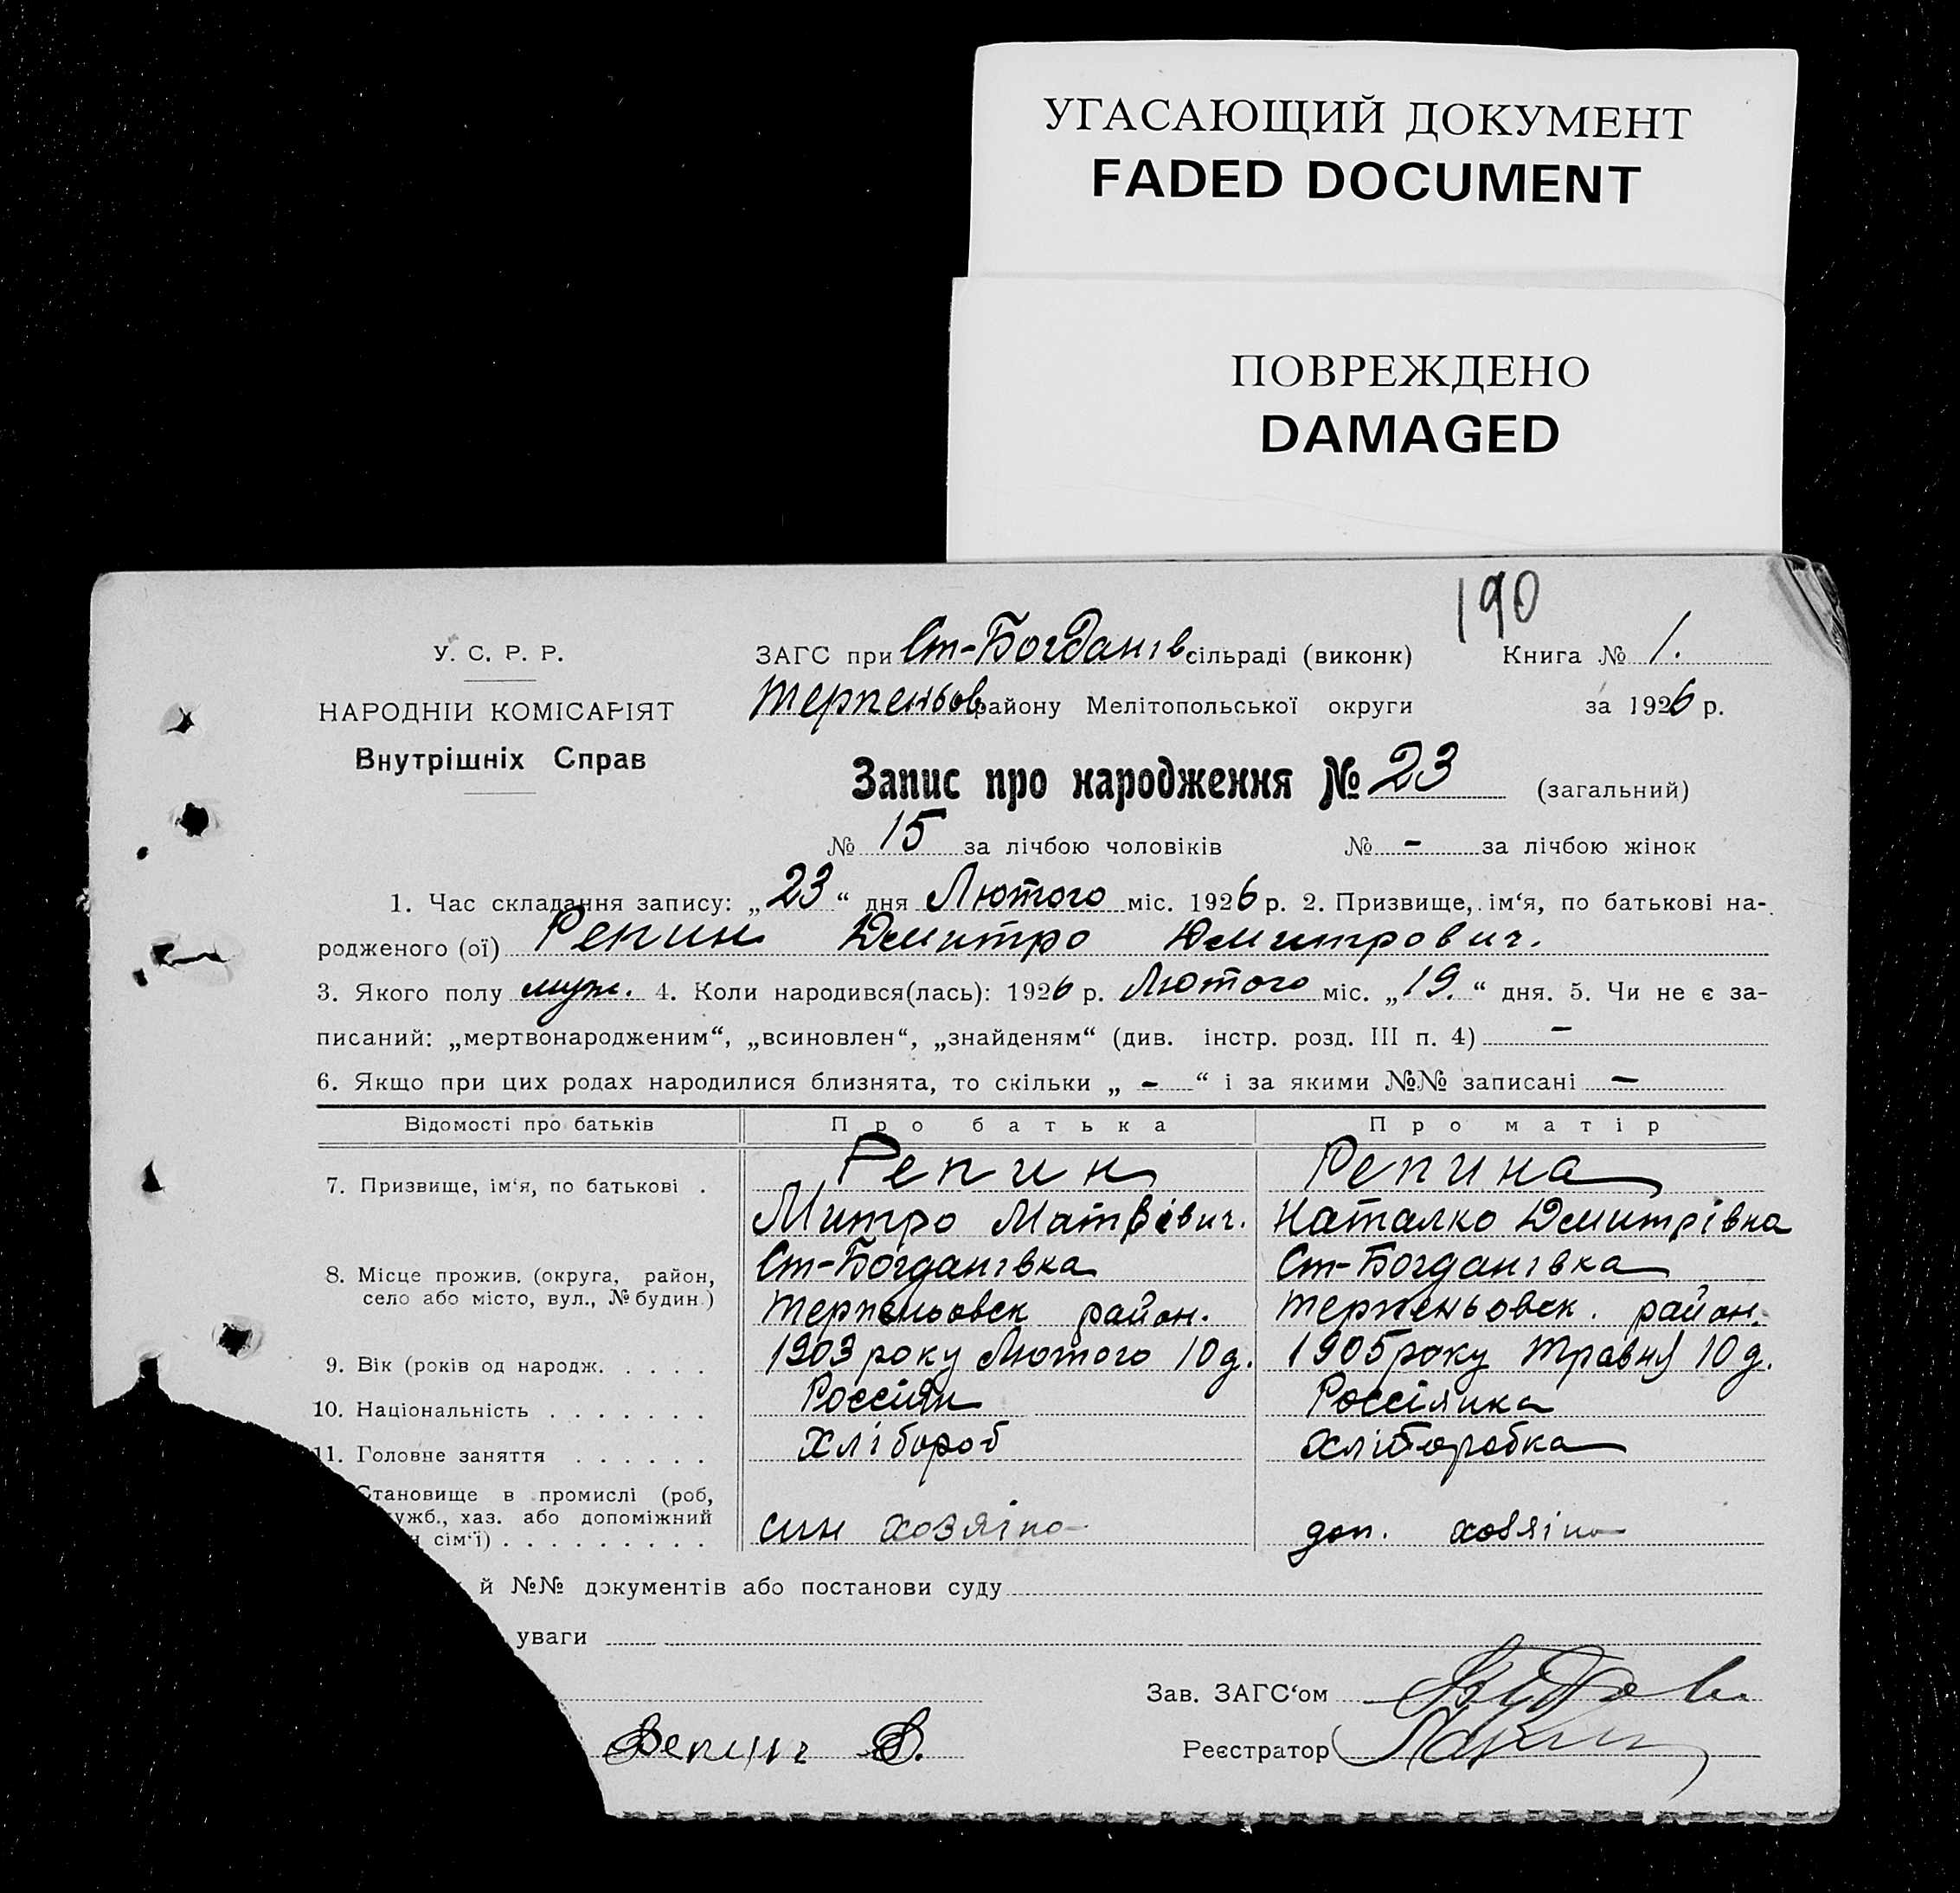 УГАСАЮЩИЙ ДОКУМЕНТ
FADED DOCUMENT
ПОВРЕЖДЕНО
DAMAGED
190
У. С. Р. Р.
НАРОДНІЙ КОМІСАРІЯТ
Внутрішніх Справ
ЗАГС при Ст-Богданів сільраді (виконк) Книга № 1.
Терпеньов району Мелітопольської округи за 1926 р.
Запис про народження № 23 (загальний)
№ 15 за лічбою чоловіків № - за лічбою жінок
1. Час складання запису: „23“ дня Лютого міс. 1926 р. 2. Призвище, ім‘я, по батькові на-
родженого (ої) Репин Дмитро Дмитрович.
3. Якого полу муж. 4. Коли народився(лась): 1926 р. Лютого міс. „19.“ дня. 5. Чи не є за-
писаний: „мертвонародженим“, „всиновлен“, „знайденям“ (див. інстр. розд. III п. 4) -
6. Якщо при цих родах народилися близнята, то скільки „ - “ і за якими №№ записані -
Відомості про батьків Про батька Про матір
7. Призвище, ім‘я, по батькові . Репин Репина
Митро Матвієвич. Наталко Дмитрівна
8. Місце прожив. (округа, район, Ст-Богданівка Ст-Богданівка
село або місто, вул., № будин.) Терпеньовск район. Терпеньовск. район.
9. Вік (років од народж. . . . . 1903 року Лютого 10 д. 1905 року Травня 10 д.
10. Національність . . . . . . . Россіян Россіянка
11. Головне заняття . . . . . . Хлібороб Хліборобка
Становище в промислі (роб,
ужб., хаз. або допоміжний
сім‘ї) . . . . . . . . . син хозяіно доп. хозяіно
й №№ документів або постанови суду
уваги
Зав. ЗАГС‘ом
Репин Д. Реєстратор